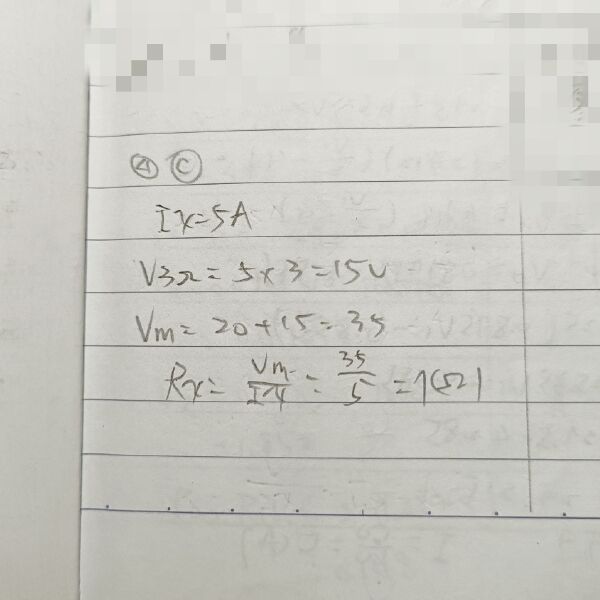 ④ Ⓒ
Ix=5A
V3Ω=5×3=15V
Vm=20+15=35
Rx=Vm/Ix=35/5=7(Ω)